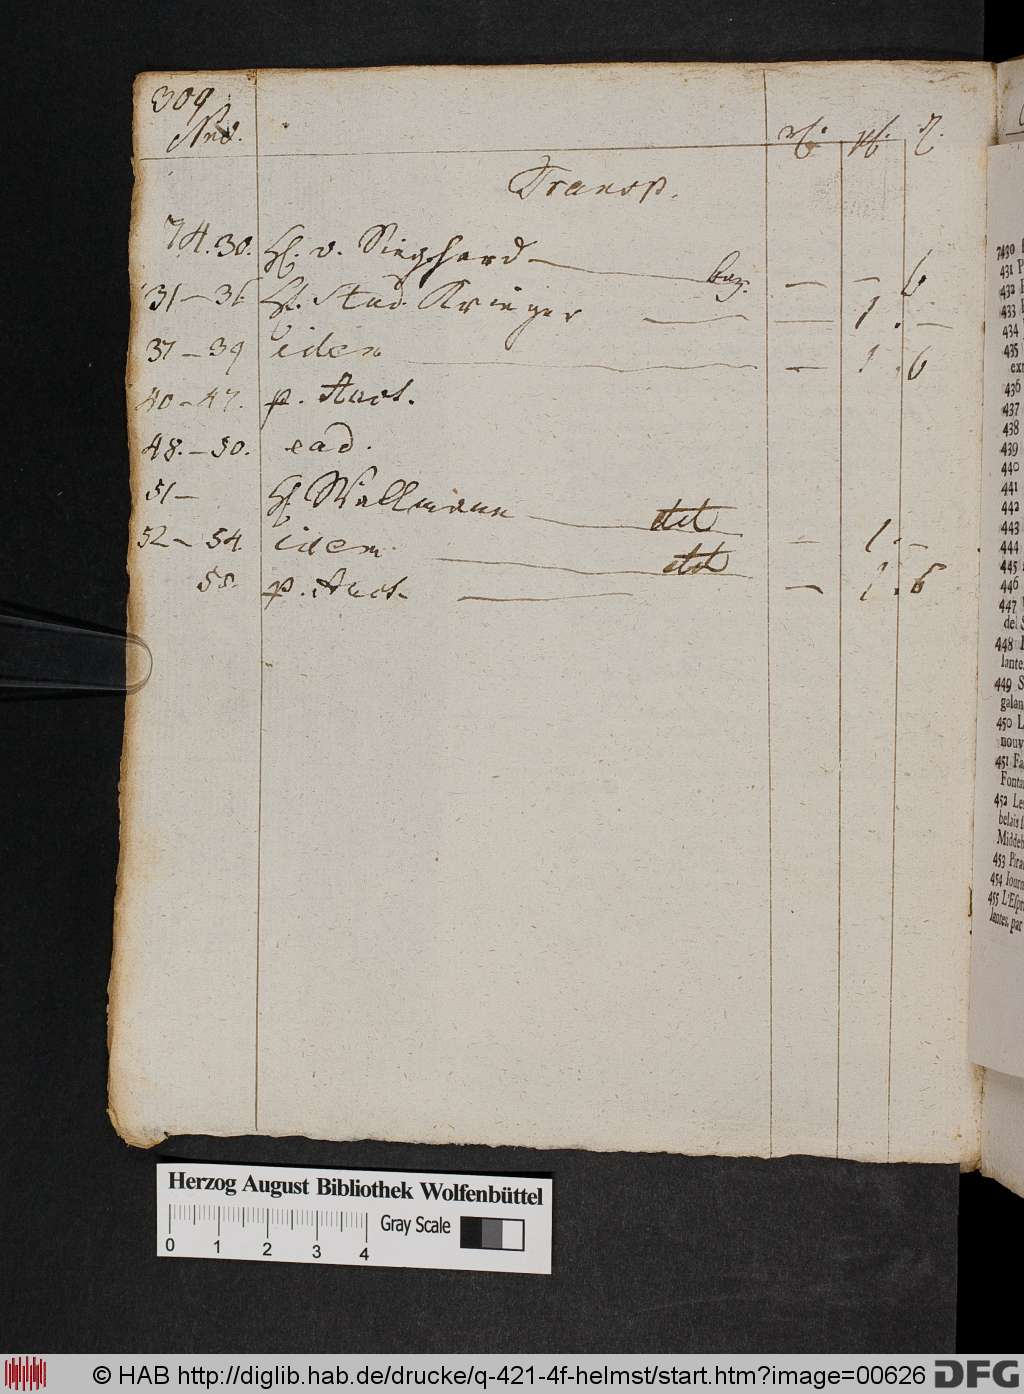 309
Nr.
Transp.
74.30. H. v. Sieghard bez. — — 6
31 — 36 H. Stud. Krieger — 1. —
37 — 39 idem — 1. 6
40 — 47. p. Auct.
48. — 50. ead.
51 — H Wallmann dt — 1. —
52 — 54. idem dt — 1. 6
55. p. Auct.
7430
431 P
432
433
434
435
ext
436
437
438
439
440
441
442
443
444
445
446
447
del S
448
lante
449 S
galan
450 L
nouv
451 Fa
Fonta
452 Les
belais
Middeb
453 Pira
454 Journ
455 L'Espr
lantes, par
Herzog August Bibliothek Wolfenbüttel
0 1 2 3 4 Gray Scale
© HAB http://diglib.hab.de/drucke/q-421-4f-helmst/start.htm?image=00626 DFG